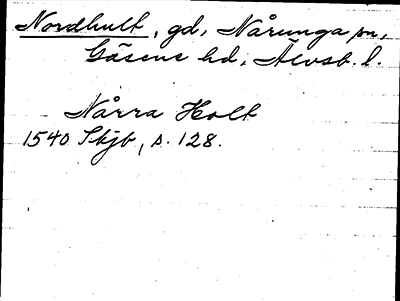 Nordhult, gd, Nårunga sn,
Gäsene hd, Älvsb. l.
Nårra Holt
1540 Skjb, s. 128.